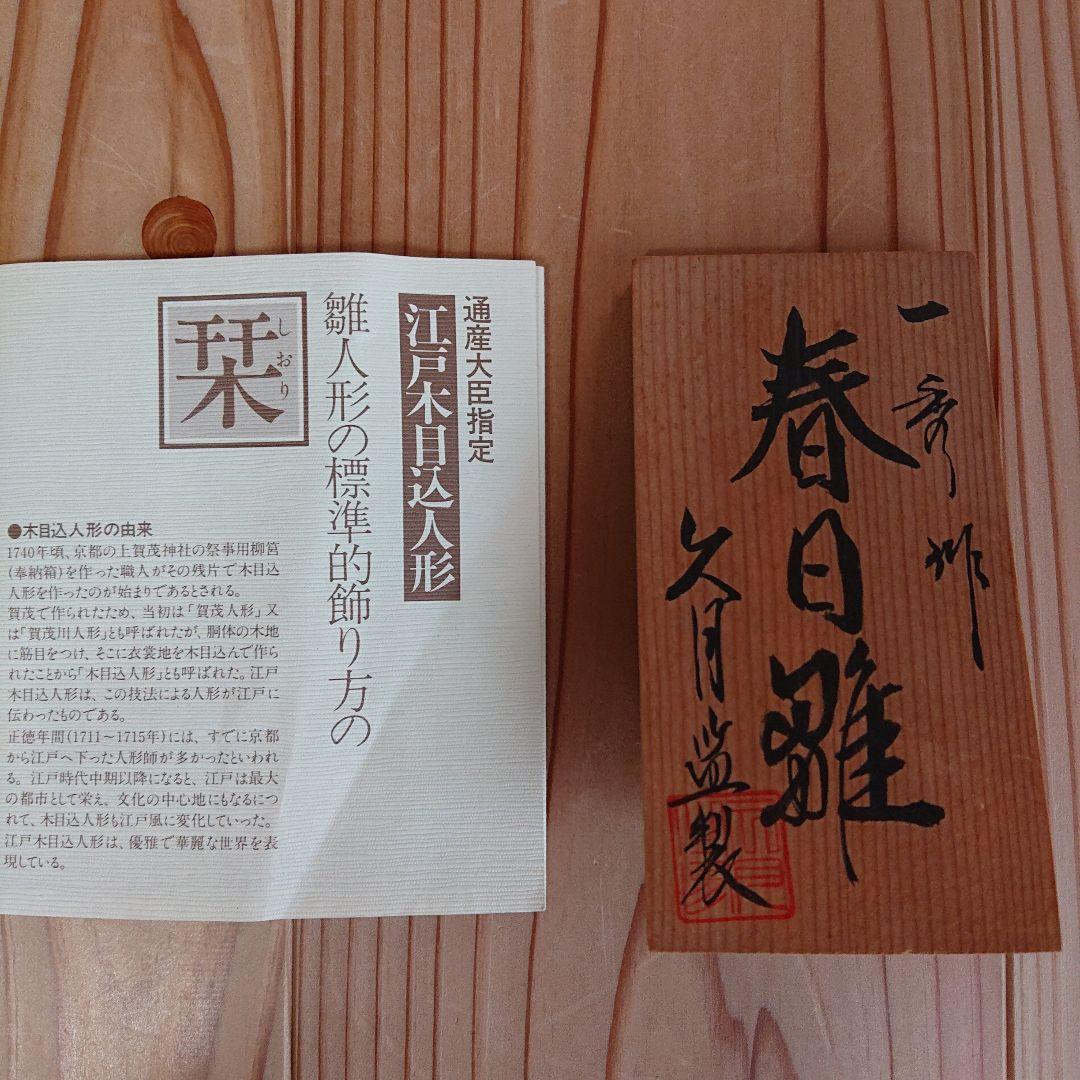 通産大臣指定
江戸木目込人形
雛人形の標準的飾り方の
栞
しおり
●木目込人形の由来
1740年頃、京都の上賀茂神社の祭事用柳筥
(奉納箱)を作った職人がその残片で木目込
人形を作ったのが始まりであるとされる。
賀茂で作られたため、当初は「賀茂人形」又
は「賀茂川人形」とも呼ばれたが、胴体の木地
に筋目をつけ、そこに衣裳地を木目込んで作ら
れたことから「木目込人形」とも呼ばれた。江戸
木目込人形は、この技法による人形が江戸に
伝わったものである。
正徳年間(1711〜1715年)には、すでに京都
から江戸へ下った人形師が多かったといわれ
る。江戸時代中期以降になると、江戸は最大
の都市として栄え、文化の中心地にもなるにつ
れて、木目込人形も江戸風に変化していった。
江戸木目込人形は、優雅で華麗な世界を表
現している。
一秀作
春日雛
久月監製